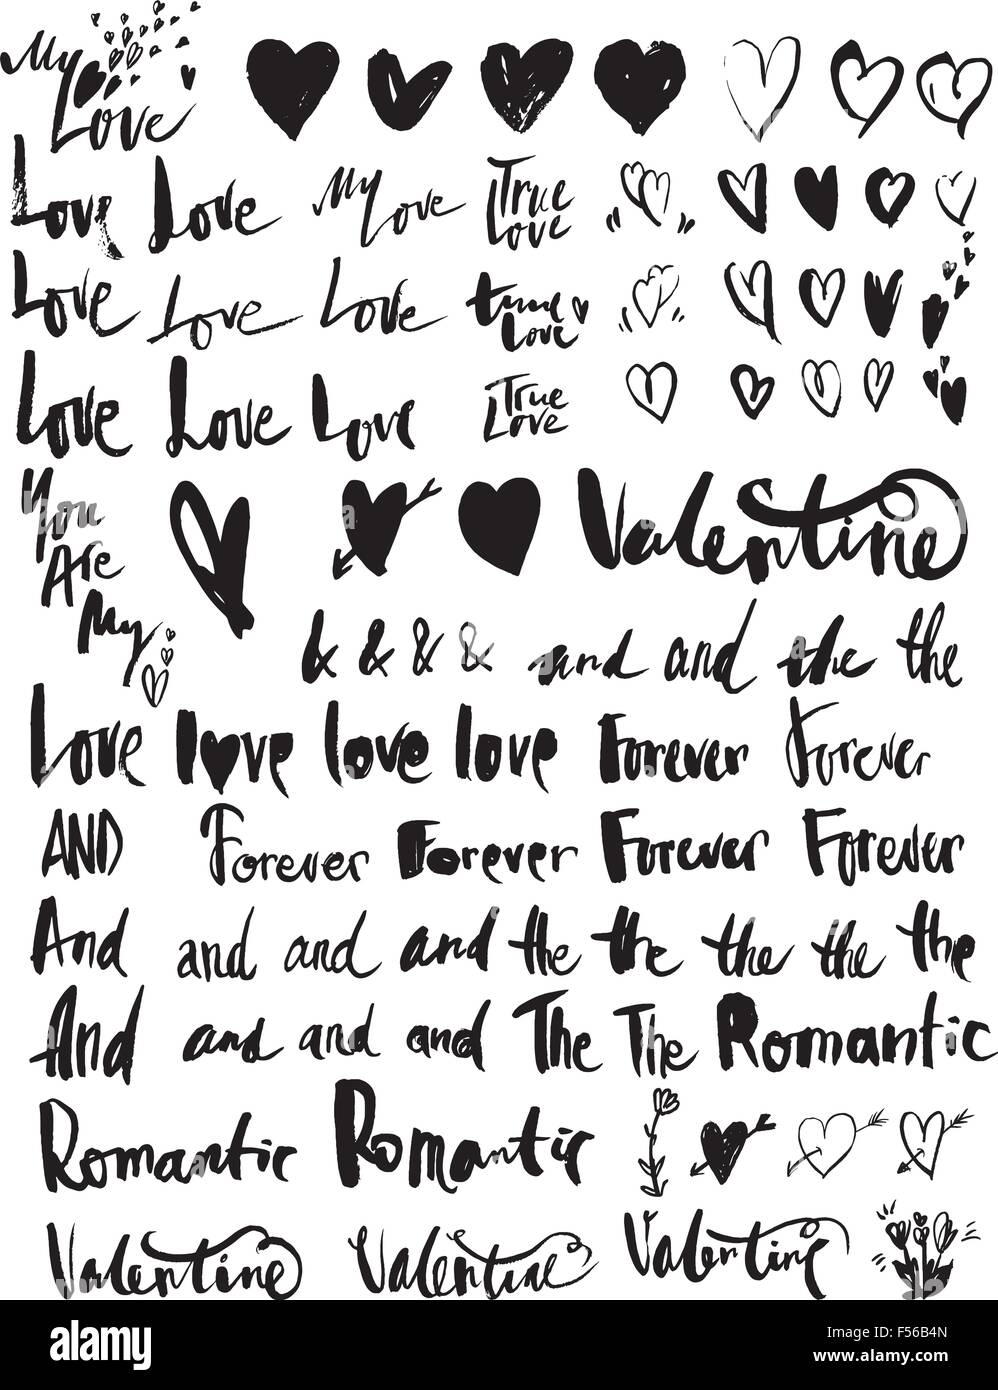 My
Love
Love Love My Love True Love
Love Love Love true Love
Love Love Love True Love
You Are My
Valentine
& & & & and and the the
Love love love love Forever Forever
AND Forever Forever Forever Forever
And and and and the the the the the
And and and and The The Romantic
Romantic Romantic
Valentine Valentine Valentine
alamy
Image ID: F56B4N
www.alamy.com